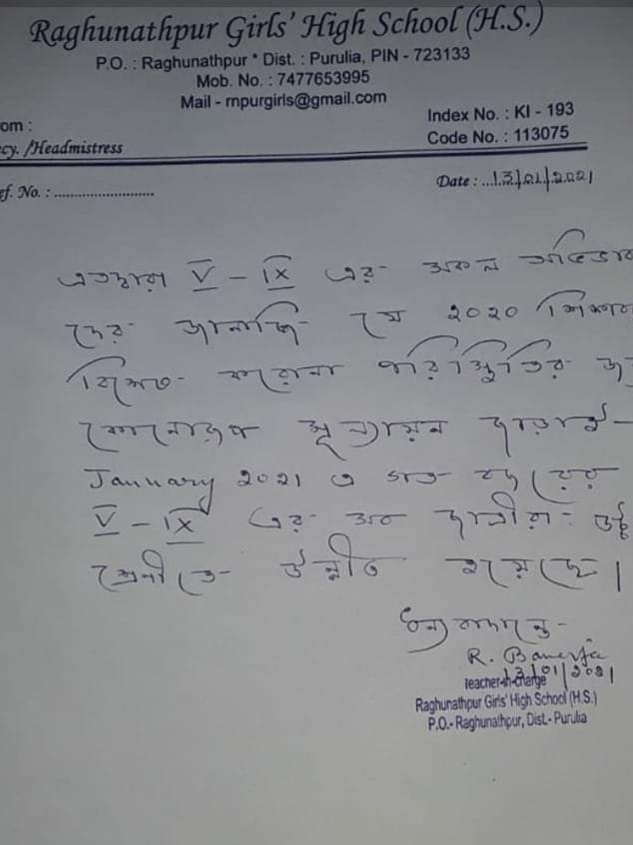 Raghunathpur Girls' High School (H.S.)
P.O. : Raghunathpur * Dist. : Purulia, PIN - 723133
Mob. No. : 7477653995
Mail - rnpurgirls@gmail.com
Index No. : KI - 193
om :
Code No. : 113075
cy. /Headmistress
ef. No. : ........................
Date : ...13/01/2021
এতদ্বারা V - IX এর সকল অভিভাব
দের জানাচ্ছি যে ২০২০ শিক্ষাব
বিশেষত করোনা পরিস্থিতির জ
কোনোরূপ মূল্যায়ন ছাড়াই -
January 2021 এ গত বছরের
V - IX এর সব ছাত্রীরা
শ্রেনীতে উন্নীত হয়েছে।
ধন্যবাদান্তে -
R. Banerjee
13/01/2021
teacher-in-charge
Raghunathpur Girls' High School (H.S.)
P.O.- Raghunathpur, Dist.- Purulia